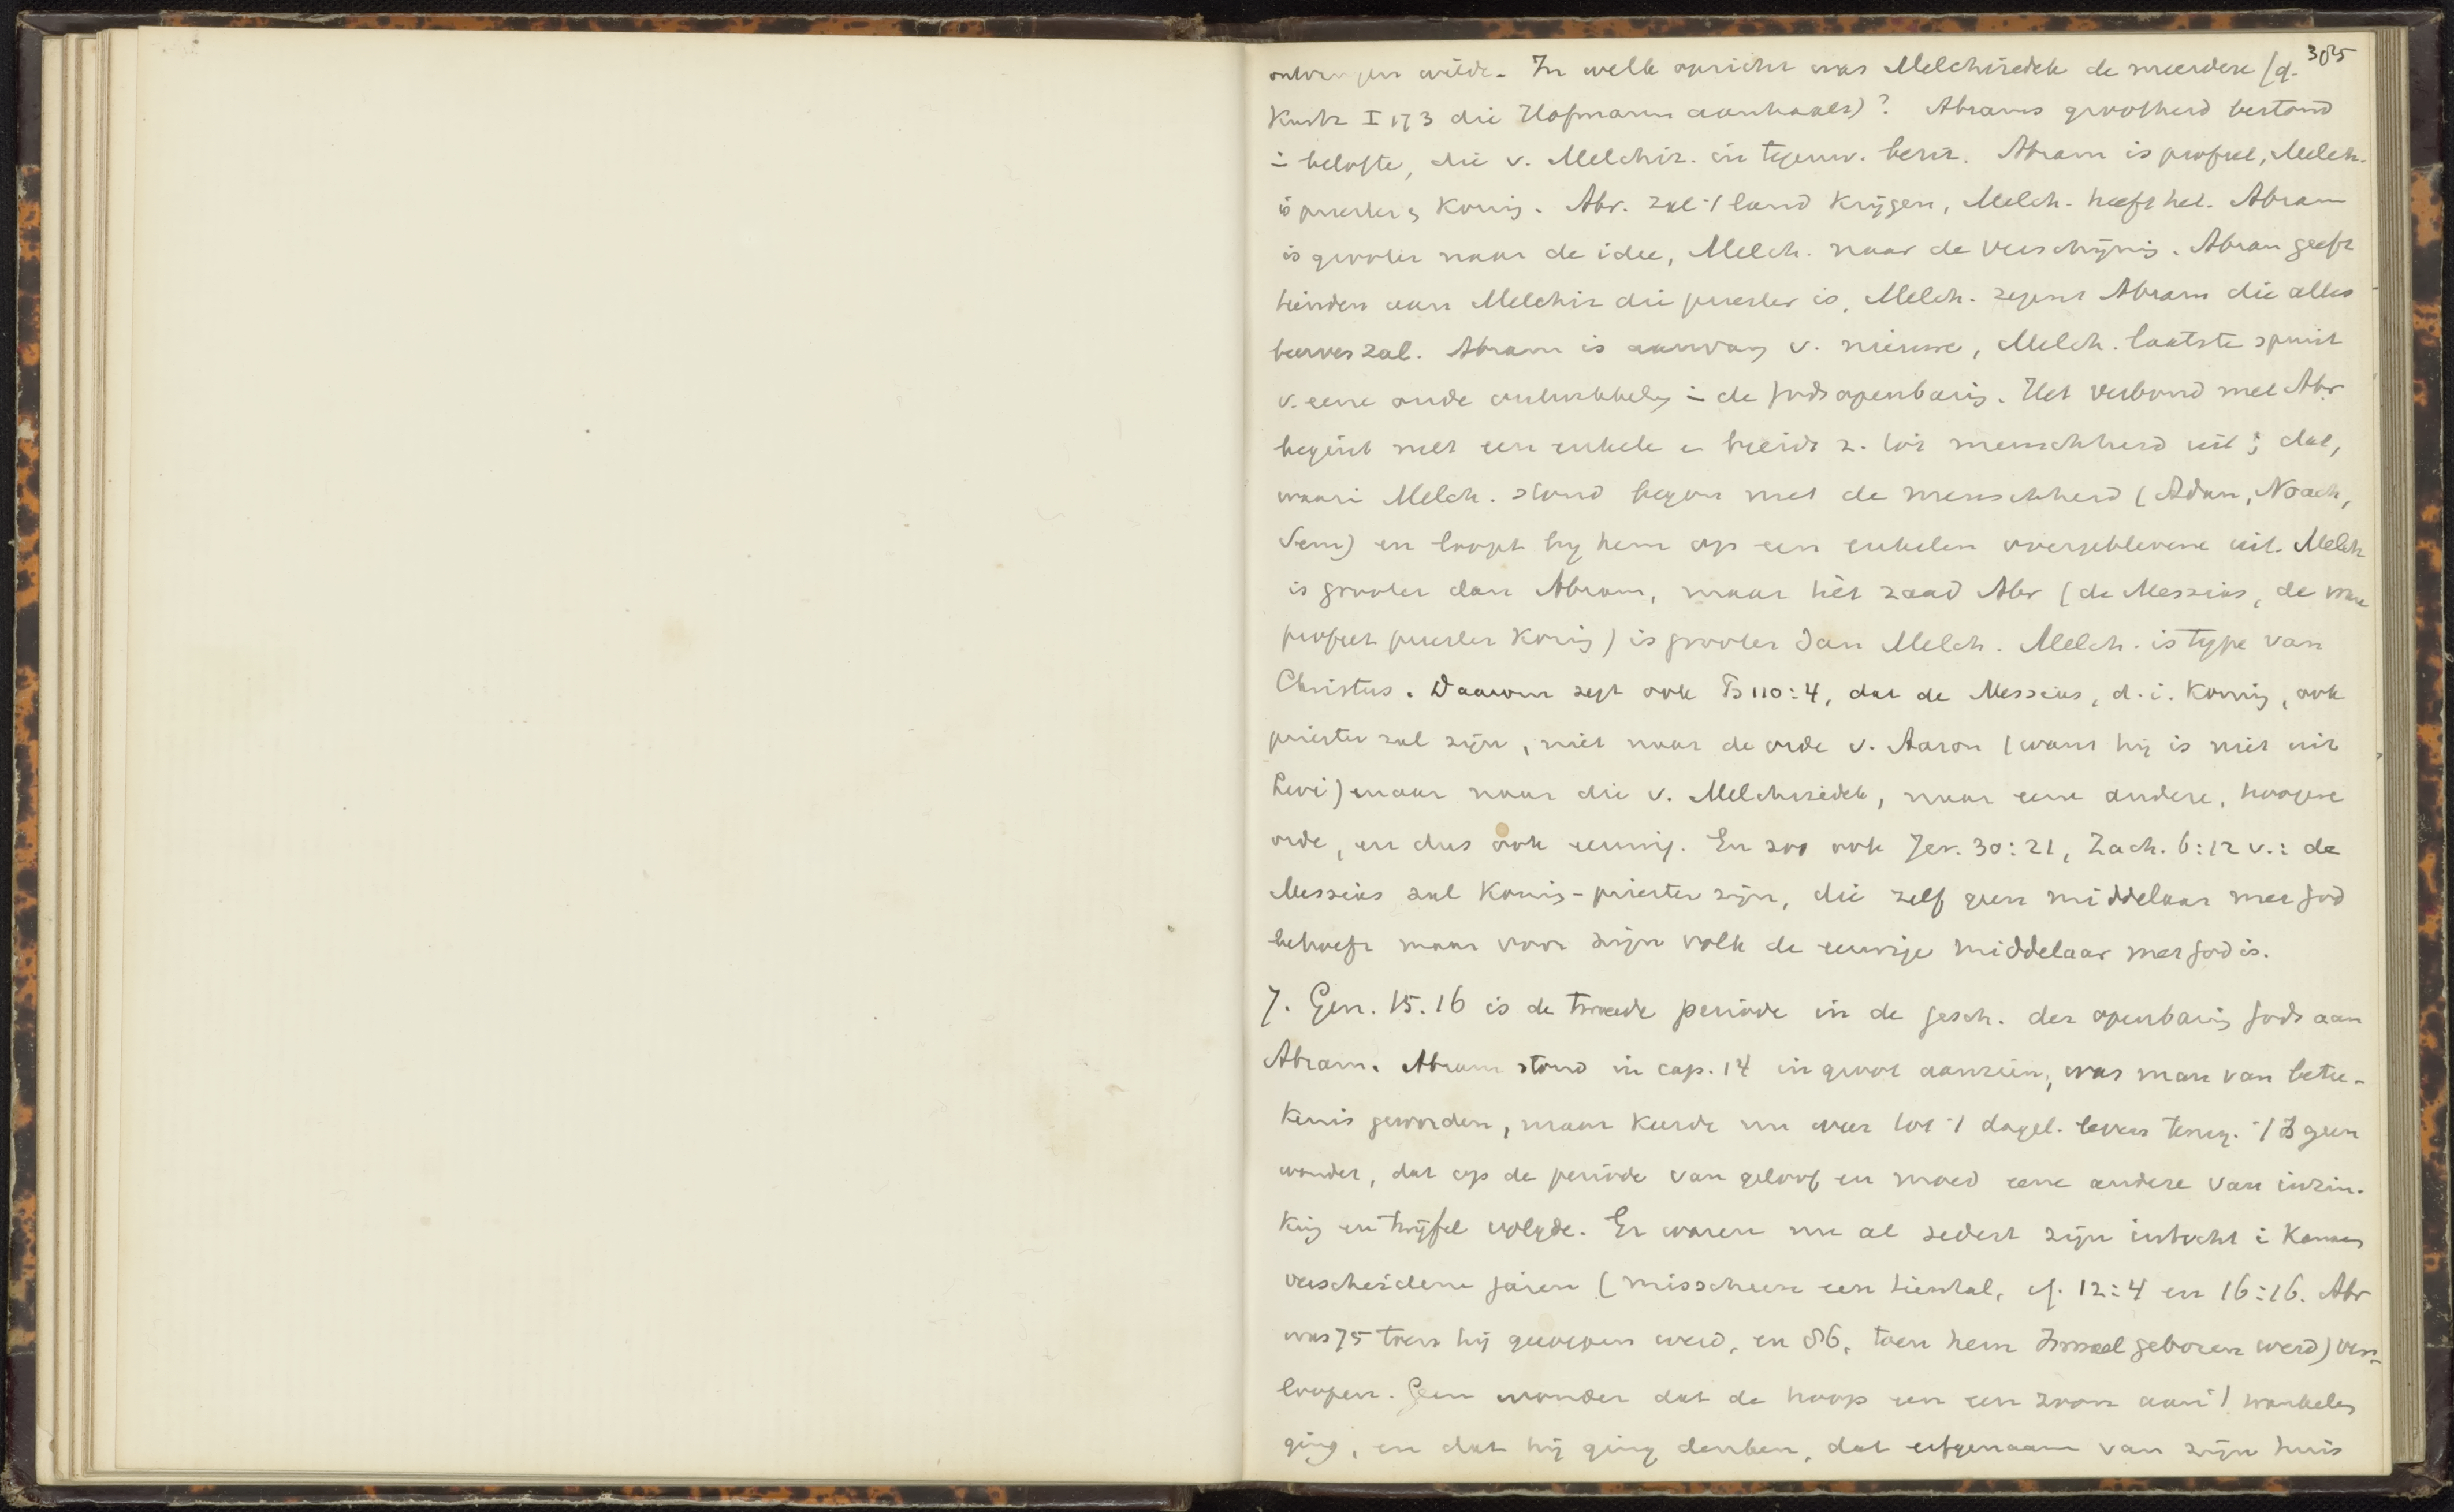 385
ontvangen wilde. In welk opzicht was Melchizedek de meerdere (cf.
Kurtz I 173 die Hofmann aanhaalt)? Abrams grootheid bestond
i belofte, die v. Melchiz. in tegenw. bezit. Abram is profeet, Melch.
is priester & Koning. Abr. zal 't land krijgen, Melch. heeft het. Abram
is grooter naar de idee, Melch. naar de verschijning. Abram geeft
tienden aan Melchiz die priester is, Melch. zegent Abram die alles
beerven zal. Abram is aanvang v. nieuwe, Melch. laatste spruit
v. eene oude ontwikkeling i de Godsopenbaring. Het verbond met Abr
begint met een enkele en breidt z. tot menschheid uit; dat,
waari Melch. stond begon met de menschheid (Adam, Noach,
Sem) en loopt bij hem op een enkelen overgeblevene uit. Melch
is grooter dan Abram, maar hèt zaad Abr (de Messias, de ware
profeet priester Koning) is grooter dan Melch. Melch. is type van
Christus. Daarom zegt ook Ps 110:4, dat de Messias, d.i. Koning, ook
priester zal zijn, niet naar de orde v. Aaron (want hij is niet uit
Levi) maar naar die v. Melchizedek, naar eene andere, hoogere
orde, en dus ook eeuwig. En zoo ook Jer. 30:21, Zach. 6:12 v.: de
Messias zal Konig-priester zijn, die zelf geen middelaar met God
behoeft maar voor zijn volk de eeuwige middelaar met God is.
7. Gen. 15. 16 is de tweede periode in de gesch. der openbaring Gods aan
Abram. Abram stond in cap. 14 in groot aanzien, was man van betee-
kenis geworden, maar keerde nu weer tot 't dagel. leven terug. 't Is geen
wonder, dat op de periode van geloof en moed eene andere van inzin-
king en twijfel volgde. Er waren nu al sedert zijn intocht i Kanaan
verscheidene jaren (misschien een tiental, cf. 12:4 en 16:16. Abr
was 75 toen hij geroepen werd, en 86, toen hem Ismael geboren werd) ver-
loopen. Geen wonder dat de hoop een een zoon aan 't wankelen
ging, en dat hij ging denken, dat erfgenaam van zijn huis